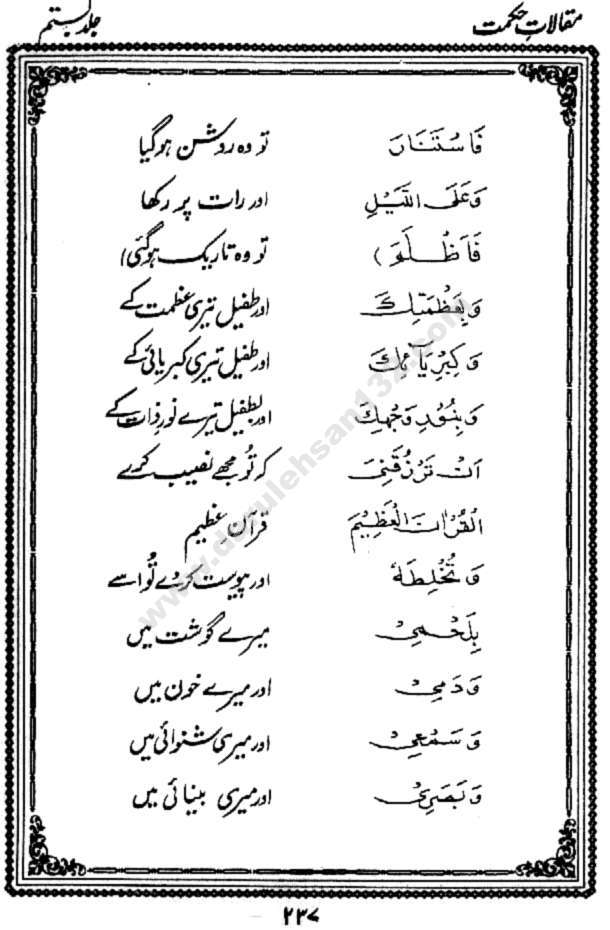 مقالاتِ حکمت جلد بستم
فَاسْتَنَارَ تو وہ روشن ہوگیا
وَعَلَی اللَّیْلِ اور رات پر رکھا
فَاَظْلَمَ ) تو وہ تاریک ہوگئی)
وَبِعَظْمَتِكَ اور طفیل تیری عظمت کے
وَکِبْرِیَآئِكَ اور طفیل تیری کبریائی کے
وَبِنُوْرِ وَجْهِكَ اور بطفیل تیرے نورِ ذات کے
اَنْ تَرْزُقَنِیَ کہ تُو مجھے نصیب کرے
الْقُرْاٰنَ الْعَظِیْمَ قرآنِ عظیم
وَتُخْلِطَهٗ اور پیوست کردے تُو اسے
بِلَحْمِیْ میرے گوشت میں
وَدَمِیْ اور میرے خون میں
وَسَمْعِیْ اور میری شنوائی میں
وَبَصَرِیْ اور میری بینائی میں
www.darulehsan137.com
۲۳۷